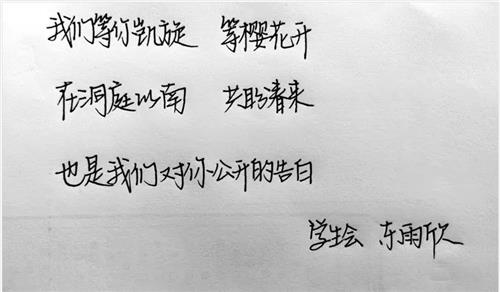 我们等你凯旋 等樱花开
在洞庭以南 共盼春来
也是我们对你公开的告白
学生会 东雨欣